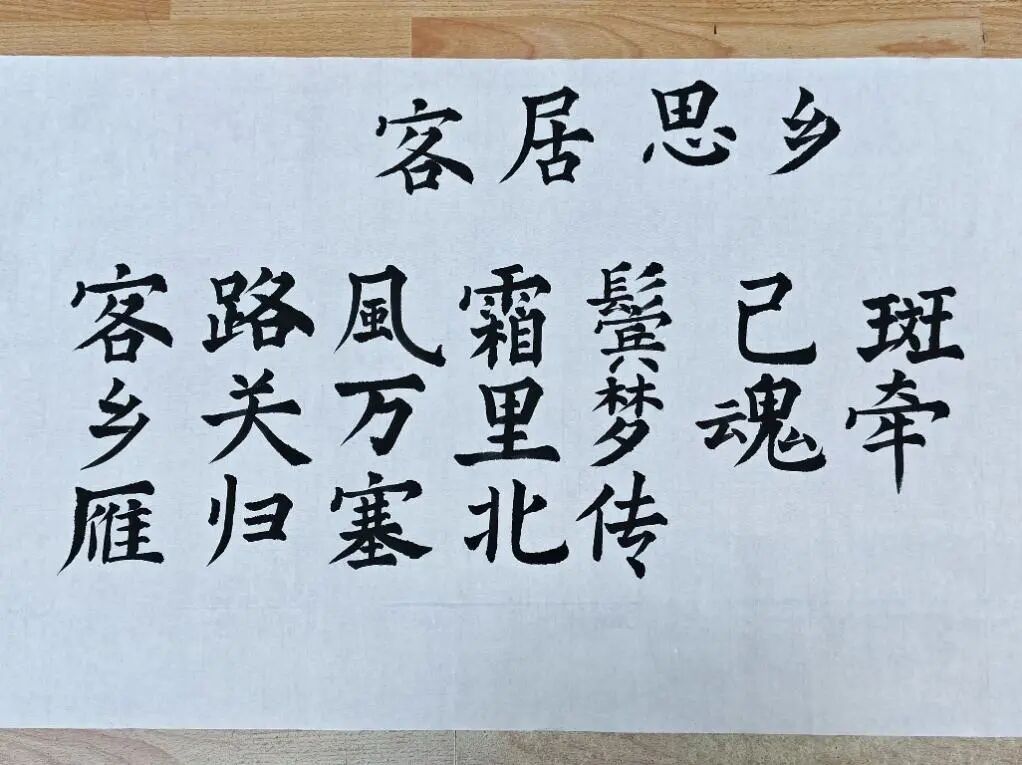 客居思乡
客路風霜鬓已斑
乡关万里梦魂牵
雁归塞北传